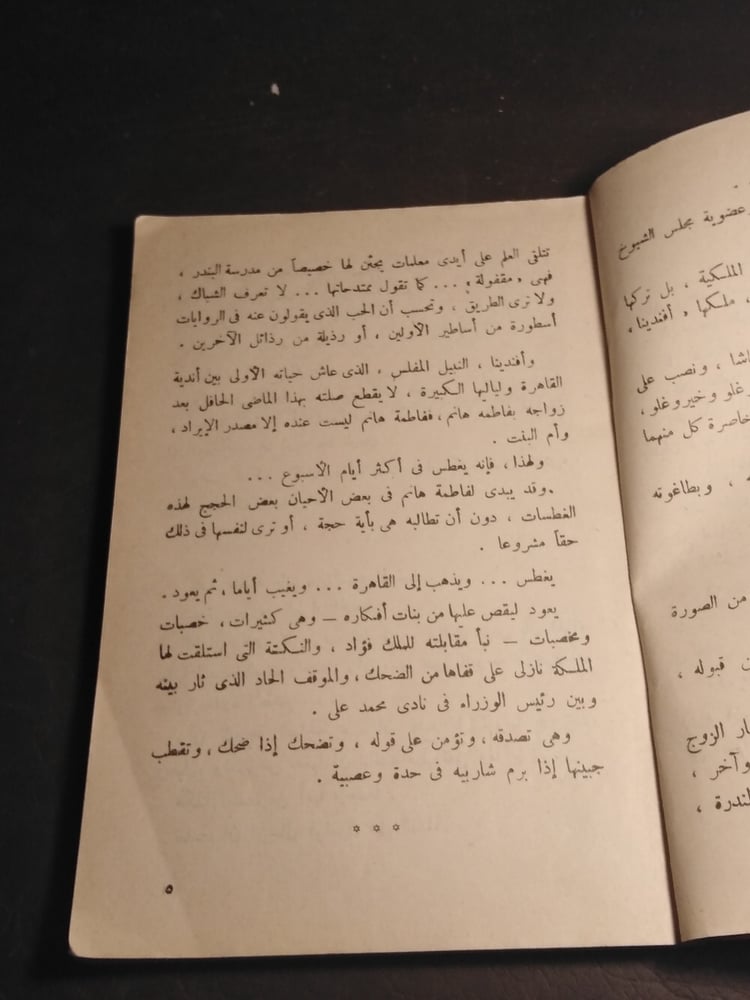 عضوية مجلس الشيوخ
الملكية ، بل تركها
، ملكها « أفندينا »
اشا ، ونصب على
رغلو وخيروغلو ،
خاصرة كل منهما
، وبطاغوته
من الصورة
ن قبوله ،
ار الزوج
وآخر ،
لندرة ،
تتلقى العلم على أيدى معلمات يجئن لها خصيصاً من مدرسة البندر ،
فهى « مقفولة » ... كما تقول ممتدحاتها ... لا تعرف الشباك ،
ولا ترى الطريق ، وتحسب أن الحب الذى يقولون عنه فى الروايات
أسطورة من أساطير الأولين ، أو رذيلة من رذائل الآخرين .
وأفندينا ، النبيل المفلس ، الذى عاش حياته الأولى بين أندية
القاهرة ولياليها الكبيرة ، لا يقطع صلته بهذا الماضى الحافل بعد
زواجه بفاطمه هانم ، ففاطمة هانم ليست عنده إلا مصدر الإيراد ،
وأم البنت .
ولهذا ، فإنه يغطس فى أكثر أيام الأسبوع ...
وقد يبدى لفاطمة هانم فى بعض الأحيان بعض الحجج لهذه
الغطسات ، دون أن تطالبه هى بأية حجة ، أو ترى لنفسها فى ذلك
حقاً مشروعا .
يغطس ... ويذهب إلى القاهرة ... ويغيب أياما ، ثم يعود .
يعود ليقص عليها من بنات أفكاره — وهى كثيرات ، خصبات
ومخصبات — نبأ مقابلته للملك فؤاد ، والنكتة التى استلقت لها
الملكة نازلى على قفاها من الضحك ، والموقف الحاد الذى ثار بينه
وبين رئيس الوزراء فى نادى محمد على .
وهى تصدقه ، وتؤمن على قوله ، وتضحك إذا ضحك ، وتقطب
جبينها إذا برم شاربيه فى حدة وعصبية .
* * *
٥